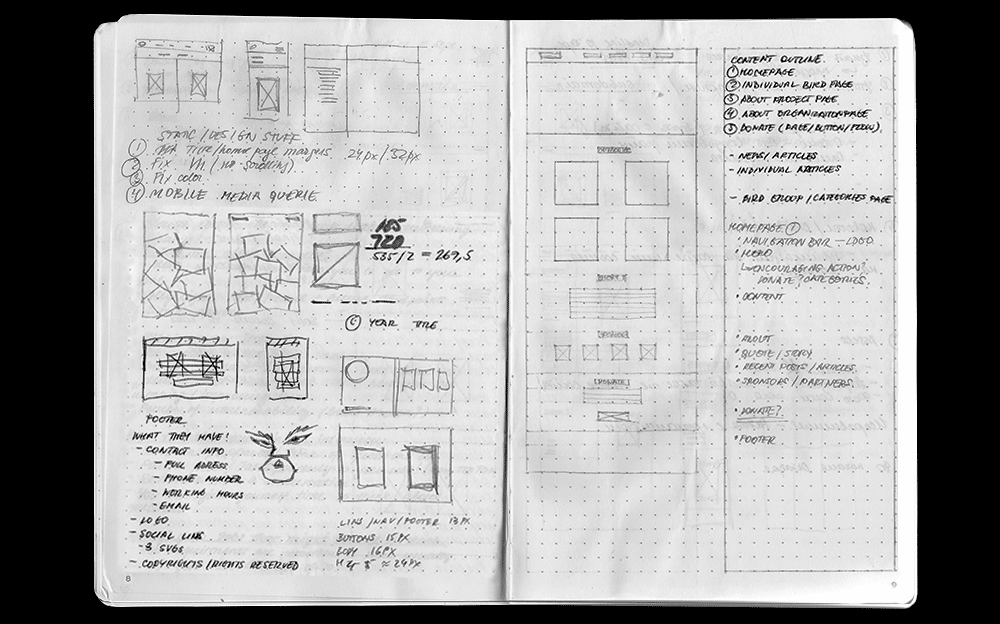 STATIC/DESIGN STUFF
① TITLE/home page margins 24px/32px
② Fix (no-scrolling)
③ Fix color
④ MOBILE MEDIA QUERIE
185
720
535/2 = 269,5
YEAR TITLE
FOOTER
WHAT THEY HAVE!
- CONTACT INFO
- FULL ADRESS
- PHONE NUMBER
- WORKING HOURS
- EMAIL
- LOGO
- SOCIAL LINS
- 3 SVGS
- COPYRIGHTS/RIGHTS RESERVED
LINS/NAV/FOOTER 13PX
BUTTONS 15PX
BODY 16PX
≈ 24PX
8
SPONSORS
DONATE
CONTENT OUTLINE
① HOMEPAGE
② INDIVIDUAL BIRD PAGE
③ ABOUT PROJECT PAGE
④ ABOUT ORGANIZATION PAGE
⑤ DONATE (PAGE/BUTTON/FLOW)
- NEWS/ARTICLES
- INDIVIDUAL ARTICLES
- BIRD GROUP/CATEGORIES PAGE
HOMEPAGE ①
• NAVIGATION BAR - LOGO
• HERO
ENCOURAGING ACTION?
DONATE? CATEGORIES.
• CONTENT
• ABOUT
• QUOTE/STORY
• RECENT POSTS/ARTICLES
• SPONSORS/PARTNERS
• DONATE?
• FOOTER
9